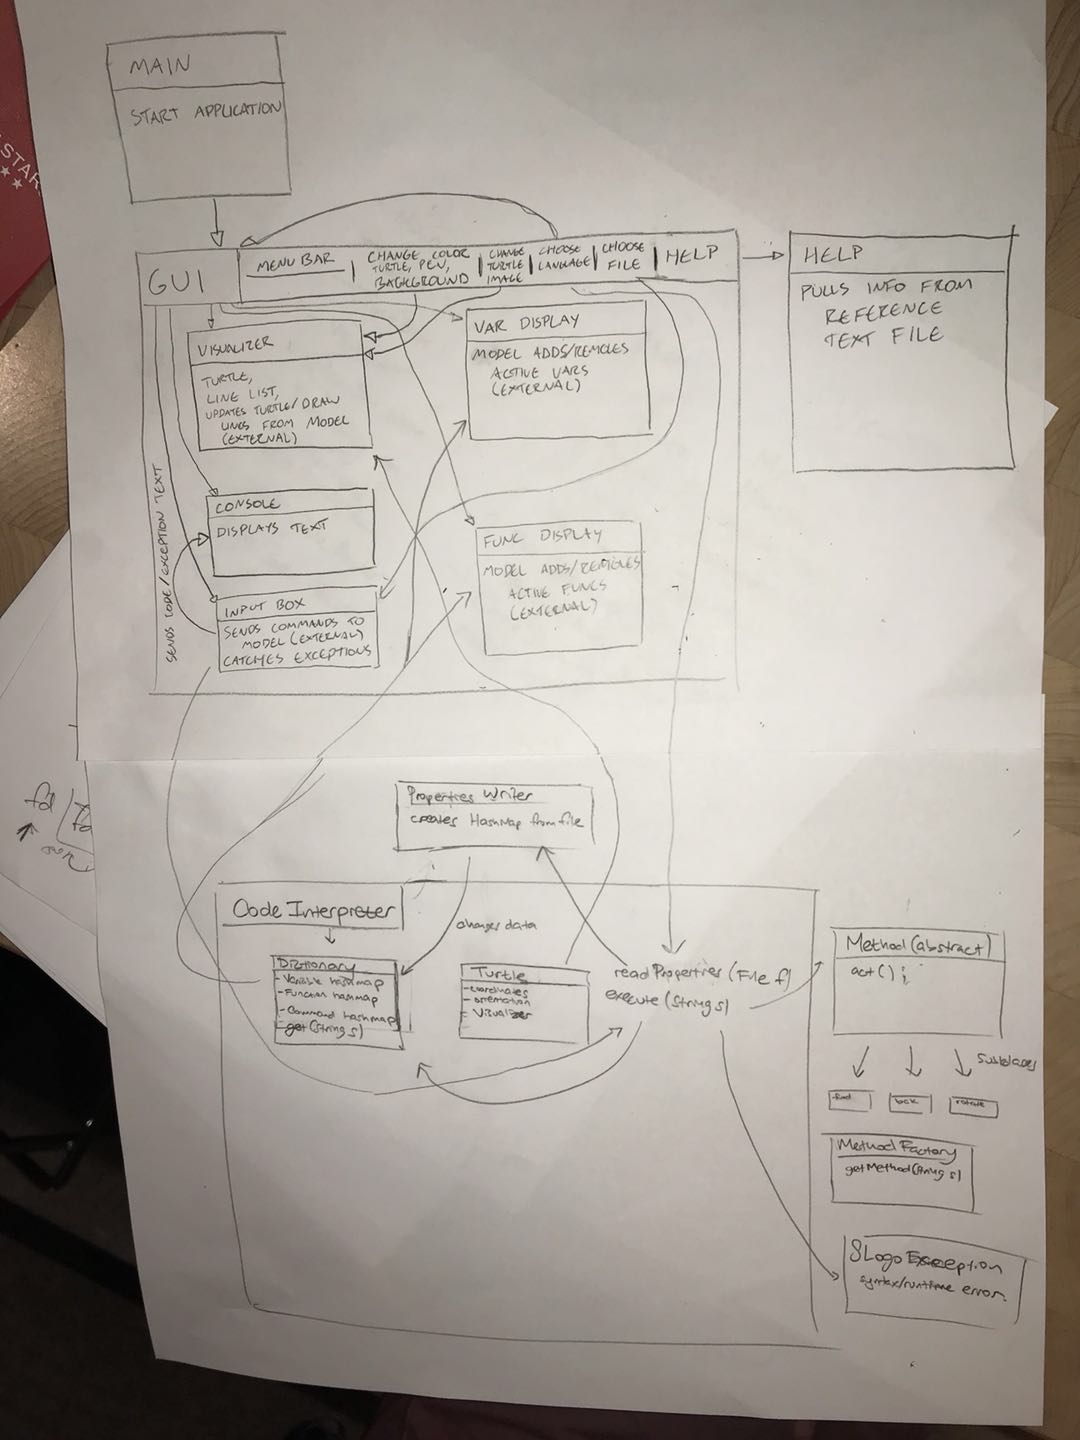 MAIN
START APPLICATION
STAR
GUI
MENU BAR
CHANGE COLOR
TURTLE, PEN,
BACKGROUND
CHANGE
TURTLE
IMAGE
CHOOSE
LANGUAGE
CHOOSE
FILE
HELP
HELP
PULLS INFO FROM
REFERENCE
TEXT FILE
VISUALIZER
TURTLE,
LINE LIST,
UPDATES TURTLE/DRAW
LINES FROM MODEL
(EXTERNAL)
VAR DISPLAY
MODEL ADDS/REMOVES
ACTIVE VARS
(EXTERNAL)
CONSOLE
DISPLAYS TEXT
FUNC DISPLAY
MODEL ADDS/REMOVES
ACTIVE FUNCS
(EXTERNAL)
INPUT BOX
SENDS COMMANDS TO
MODEL (EXTERNAL)
CATCHES EXCEPTIONS
SENDS CODE/EXCEPTION TEXT
Properties Writer
creates HashMap from file
fd
Code Interpreter
changes data
Dictionary
- Variable hashmap
- Function hashmap
- Command hashmap
- get(String s)
Turtle
- coordinates
- orientation
- Visualizer
readProperties (File f)
execute (String s)
Method (abstract)
act();
Subclasses
fwd
bck
rotate
Method Factory
getMethod(String s)
SLogo Exception
syntax/runtime error.